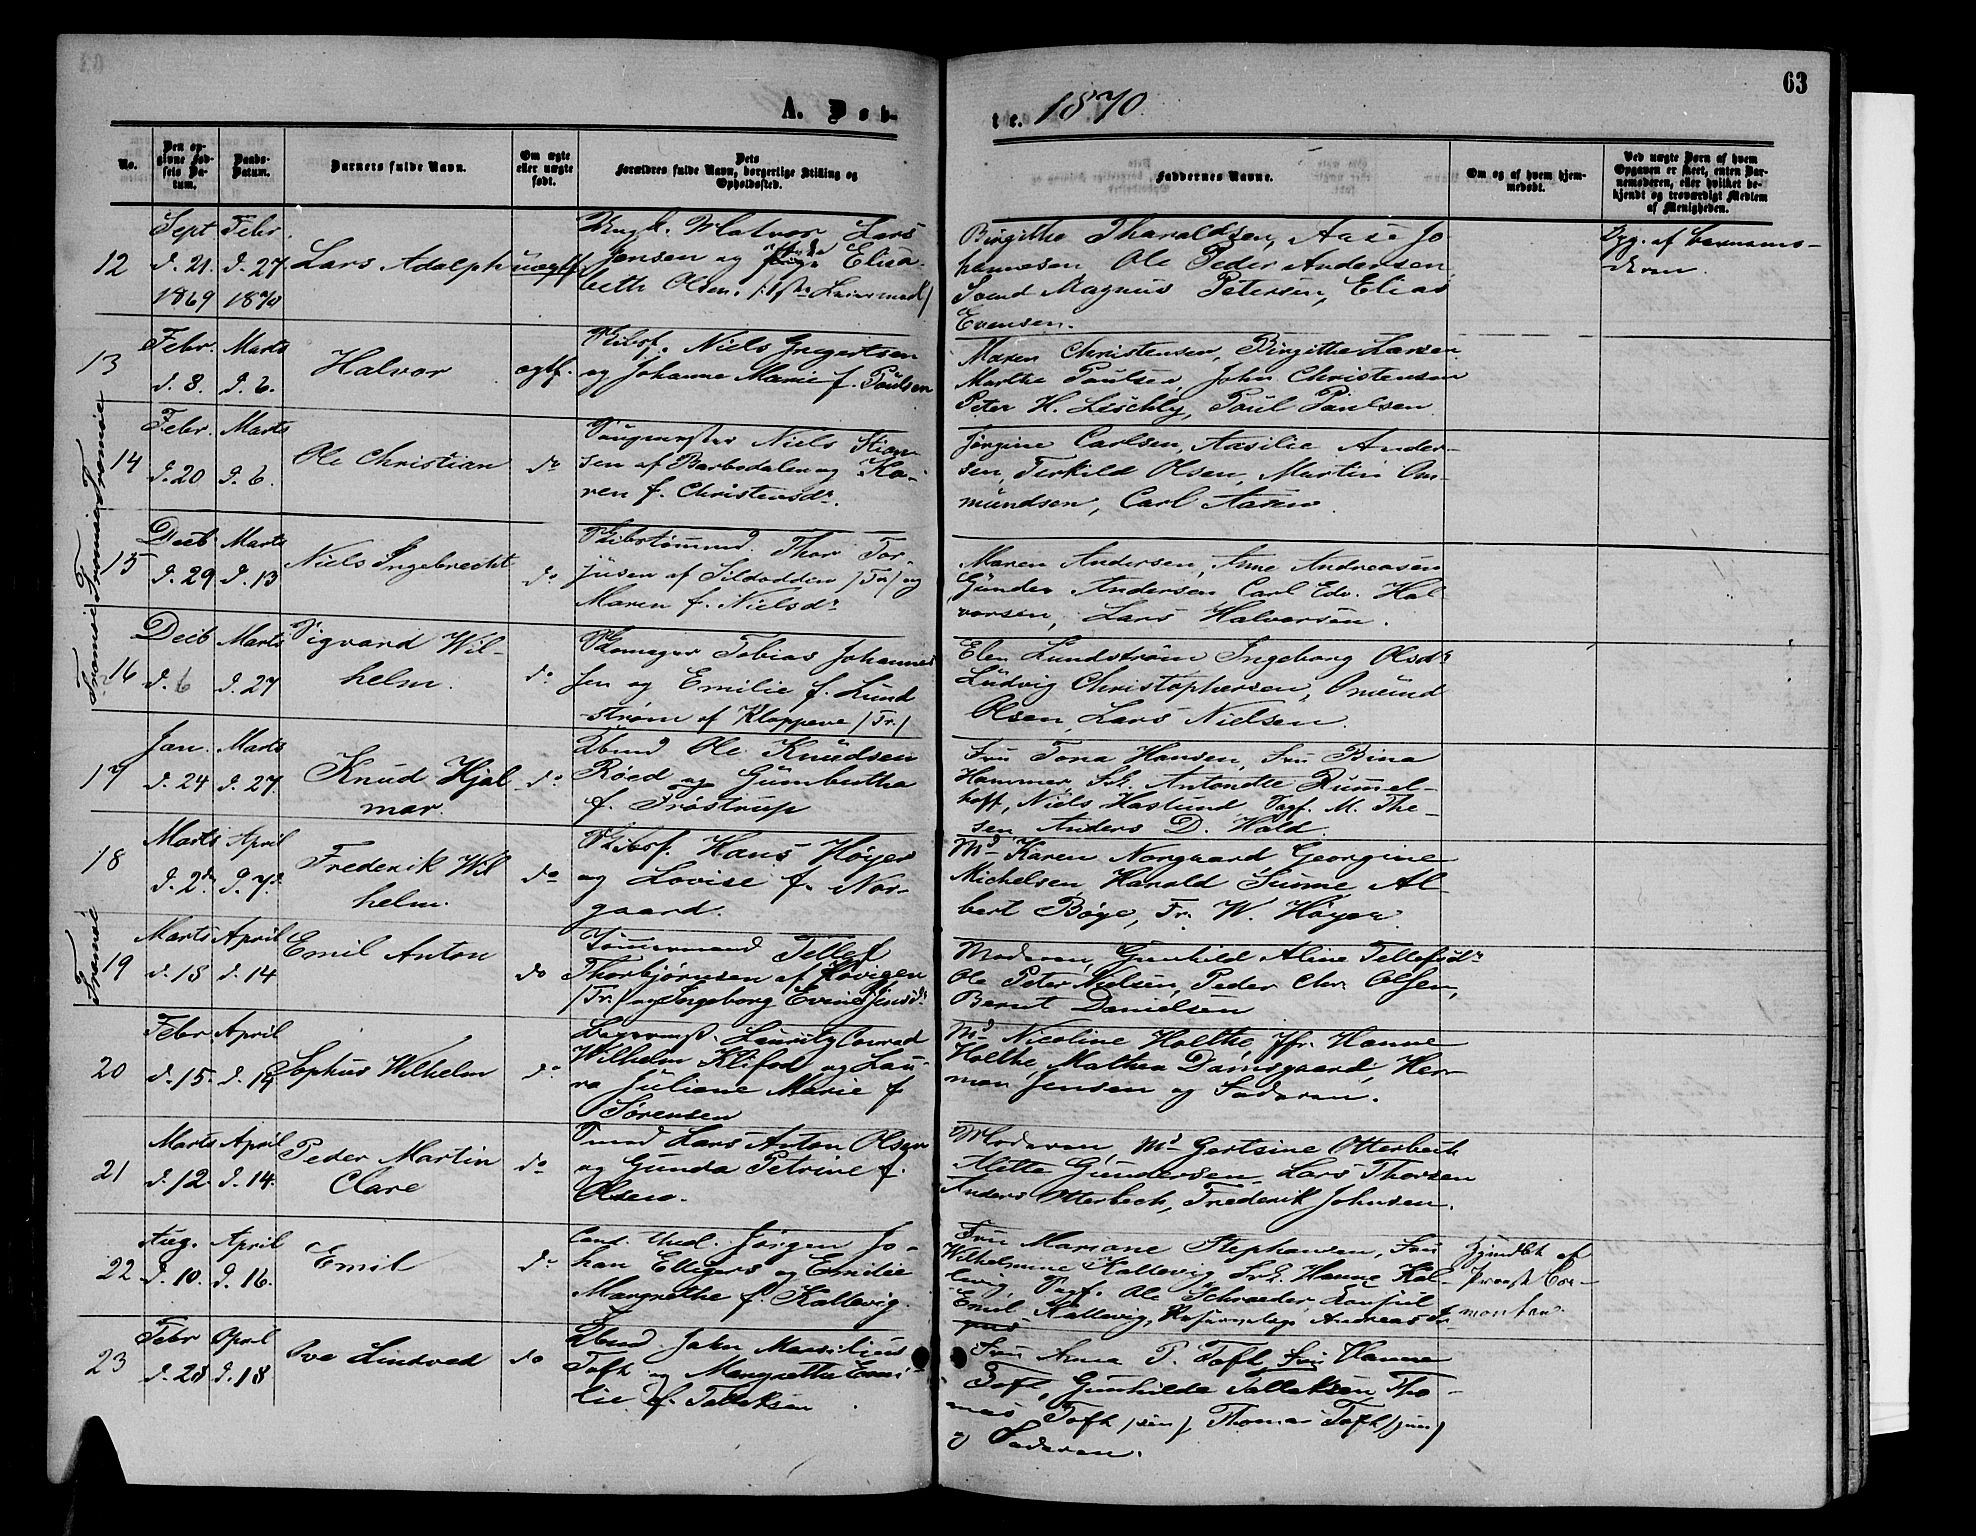 63
A. Døb-
te. 1870.
No.
Den op-
givne Fød-
sels Da-
tum.
Daabs-
Datum.
Barnets fulde Navn.
Om ægte
eller uægte
født.
Dets
Forældres fulde Navn, borgerlige Stilling og
Opholdssted.
Faddernes Navne.
Om og af hvem hjem-
medøbt.
Ved uægte Børn af hvem
Opgaven er skeet, enten Bar-
nemoderen, eller hvilket be-
kjendt og troværdigt Medlem
af Menigheden.
12
Sept
d. 21.
1869
Febr.
d. 27
1870
Lars Adolph
uægtf.
Ungk. Matros Lars
Jensen og Elisa-
beth Olsen.
Birgithe Tharaldsen, Aase Jo
hannesen Ole Peder Andersen,
Svend Magnus Petersen, Elias
Evensen.
Opg. af Barnemo-
deren.
13
Febr.
d. 8.
Marts
d. 6.
Halvor
ægtf.
Skibsf. Niels Ingertsen
og Johanne Marie f. Paulsen
Maren Christensen, Birgithe Larsen
Marthe Paulsen, John Christensen
Peter H. Lischly, Poul Paulsen.
Tromøe
14
Febr.
d. 20
Marts
d. 6.
Ole Christian
do
Niels Stian
sen af Barbodalen og Ka-
ren f. Christensdr.
Jørgine Carlsen, Aasilie Ander-
sen, Terkild Olsen, Martin Om-
mundsen, Carl Aasen.
Tromøe
15
Decb
d. 29
Marts
d. 13
Niels Ingebrecht
do
Skibstømmd. Thor Tor
jusen af Sildodden /Tr/ og
Maren f. Nielsdr
Maren Andersen, Anne Andreasen
Gunder Andersen, Carl Edv. Hal
vorsen, Lars Halvorsen.
Tromøe
16
Decb
d. 6
Marts
d. 27
Sigvard Wil-
helm.
do
Skomager Tobias Johannes
sen og Emilie f. Lund
strøm af Kloppene /Tr./
Elen Lundstrøm Ingeborg Olsdr
Ludvig Christophersen, Omund
Olsen, Lars Nielsen.
17
Jan.
d. 24
Marts
d. 27.
Knud Hjal
mar.
do
Ole Knudsen
Røed og Gumbertha
f. Frøstrup
Fru Tona Hansen, Fru Bina
Hammer, Frk. Antonette Rummel-
hoff, Niels Haslund, Sagf. M. The-
sen Anders D. Hold.
18
Marts
d. 2d.
April
d. 7d
Frederik Wil
helm.
do
Skibsf. Hans Høyer
og Lovise f. Nor-
gaard.
Md Karen Norgaard Georgine
Michelsen Harald Sunne Al-
bert Bøye, Fr. W. Høyer
Tromøe
19
Marts
d. 18
April
d. 14
Emil Anton
do
Tømmermand Tellef
Thorbjørnsen af Hovigen
/Tr./ og Ingeborg Evine Jensdr.
Moderen, Gunhild Aline Tellefsdr
Ole Peter Nielsen, Peder Chr. Olsen,
Bernt Danielsen
20
Febr
d. 15.
April
d. 14
Sophus Wilhelm
do
Lauritz Conrad
Wilhelm Klifod og Lau-
ra Juliane Marie f
Sørensen
Md. Nicoline Holthe Jfr. Hanne
Holthe Mathea Damsgaard, Her-
man Jensen og Faderen.
21
Marts
d. 12.
April
d. 14.
Peder Martin
Clare
do
Tmmd Lars Anton Olsen
og Gunda Petrine f.
Olsen.
Moderen, Md Gertsine Otterbech
Alette Gundersen, Lars Thorsen
Anders Otterbech, Frederik Johnsen.
22
Aug.
d. 10.
April
d. 16.
Emil
do
Cand. theol. Jørgen Jo-
han Ellegers og Emilie
Margrethe f. Kallevig.
Fru Mariane Stephansen, Fru
Wilhelmine Kallevig Frk. Hanne Kal-
levig, Sagf. Ole Schroeder, Konsul
Emil Kallevig, Andreas
Hjemdbt af
Provst Bor-
23
Febr
d. 28
April
d. 18
Ove Lindved
do
John Marsilius
Toft og Margrethe Emi-
lie f. Tallaksen.
Fru Anna P. Toft, Fru Hanne
Toft, Gunhilde Tallaksen Tho-
mas Toft /sen/ Thomas Toft /jun/
og Faderen.